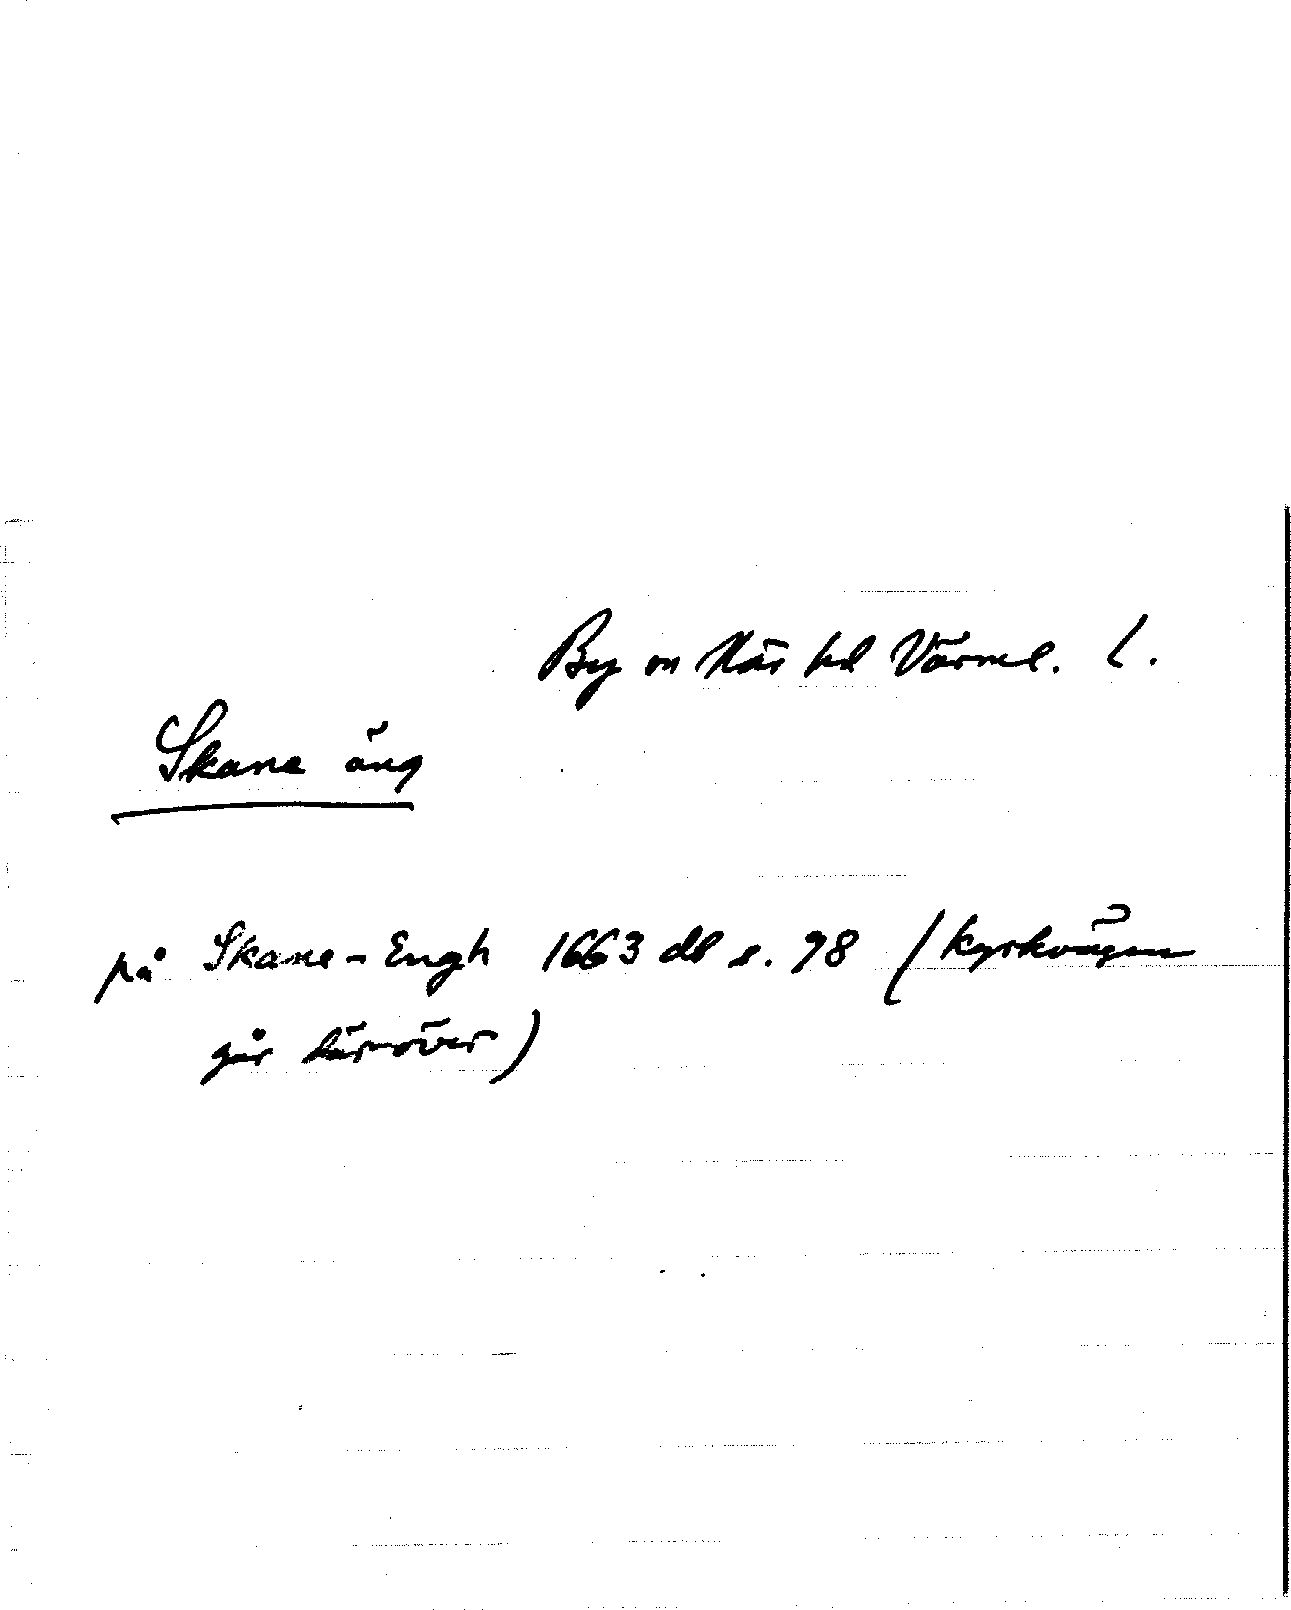 By sn Näs hd Värml. l.
Skane äng
på Skane-Engh 1663 db s. 98 (kyrkvägen
går däröver)